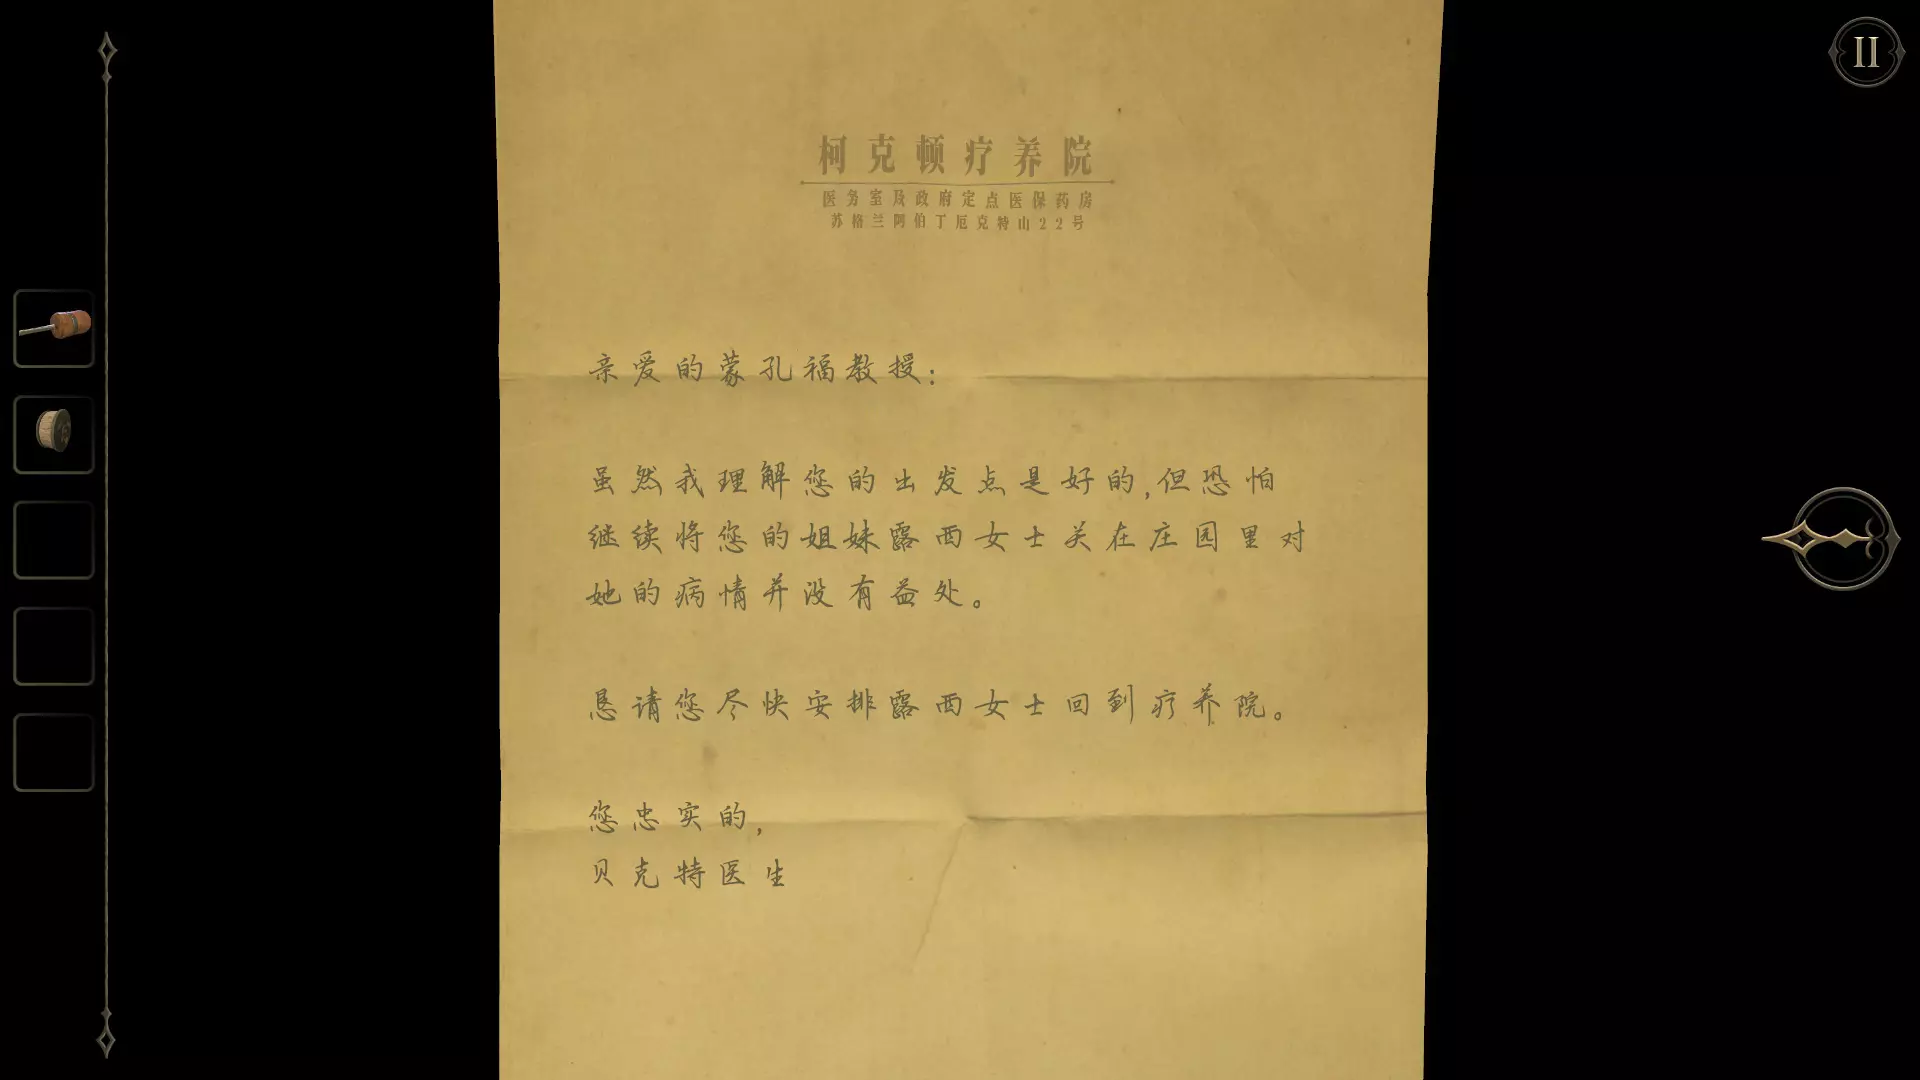 柯克顿疗养院
医务室及政府定点医保药房
苏格兰阿伯丁厄克特山22号
亲爱的蒙孔福教授：
虽然我理解您的出发点是好的,但恐怕
继续将您的姐妹露西女士关在庄园里对
她的病情并没有益处。
恳请您尽快安排露西女士回到疗养院。
您忠实的,
贝克特医生